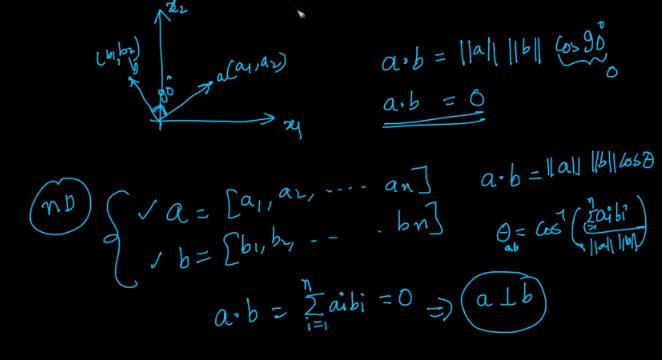 x₂
(b₁, b₂)
b
90°
a(a₁, a₂)
x₁
a·b = ||a|| ||b|| cos90°
0
a·b = 0
nD
✓ a = [a₁, a₂, ..... an]
✓ b = [b₁, b₂, ... . bn]
a·b = ||a|| ||b|| cosθ
θ a.b = cos⁻¹ (∑ⁿᵢ₌₁ aᵢbᵢ / ||a|| ||b||)
a·b = ∑ⁿᵢ₌₁ aᵢbᵢ = 0 ⇒ a ⊥ b